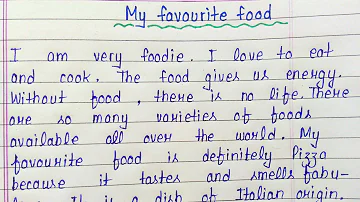 My favourite food
I am very foodie. I love to eat
and cook. The food gives us energy.
Without food, there is no life. There
are so many varieties of foods
available all over the world. My
favourite food is definitely Pizza
because it tastes and smells faby-
It is a dish of Italian origin.